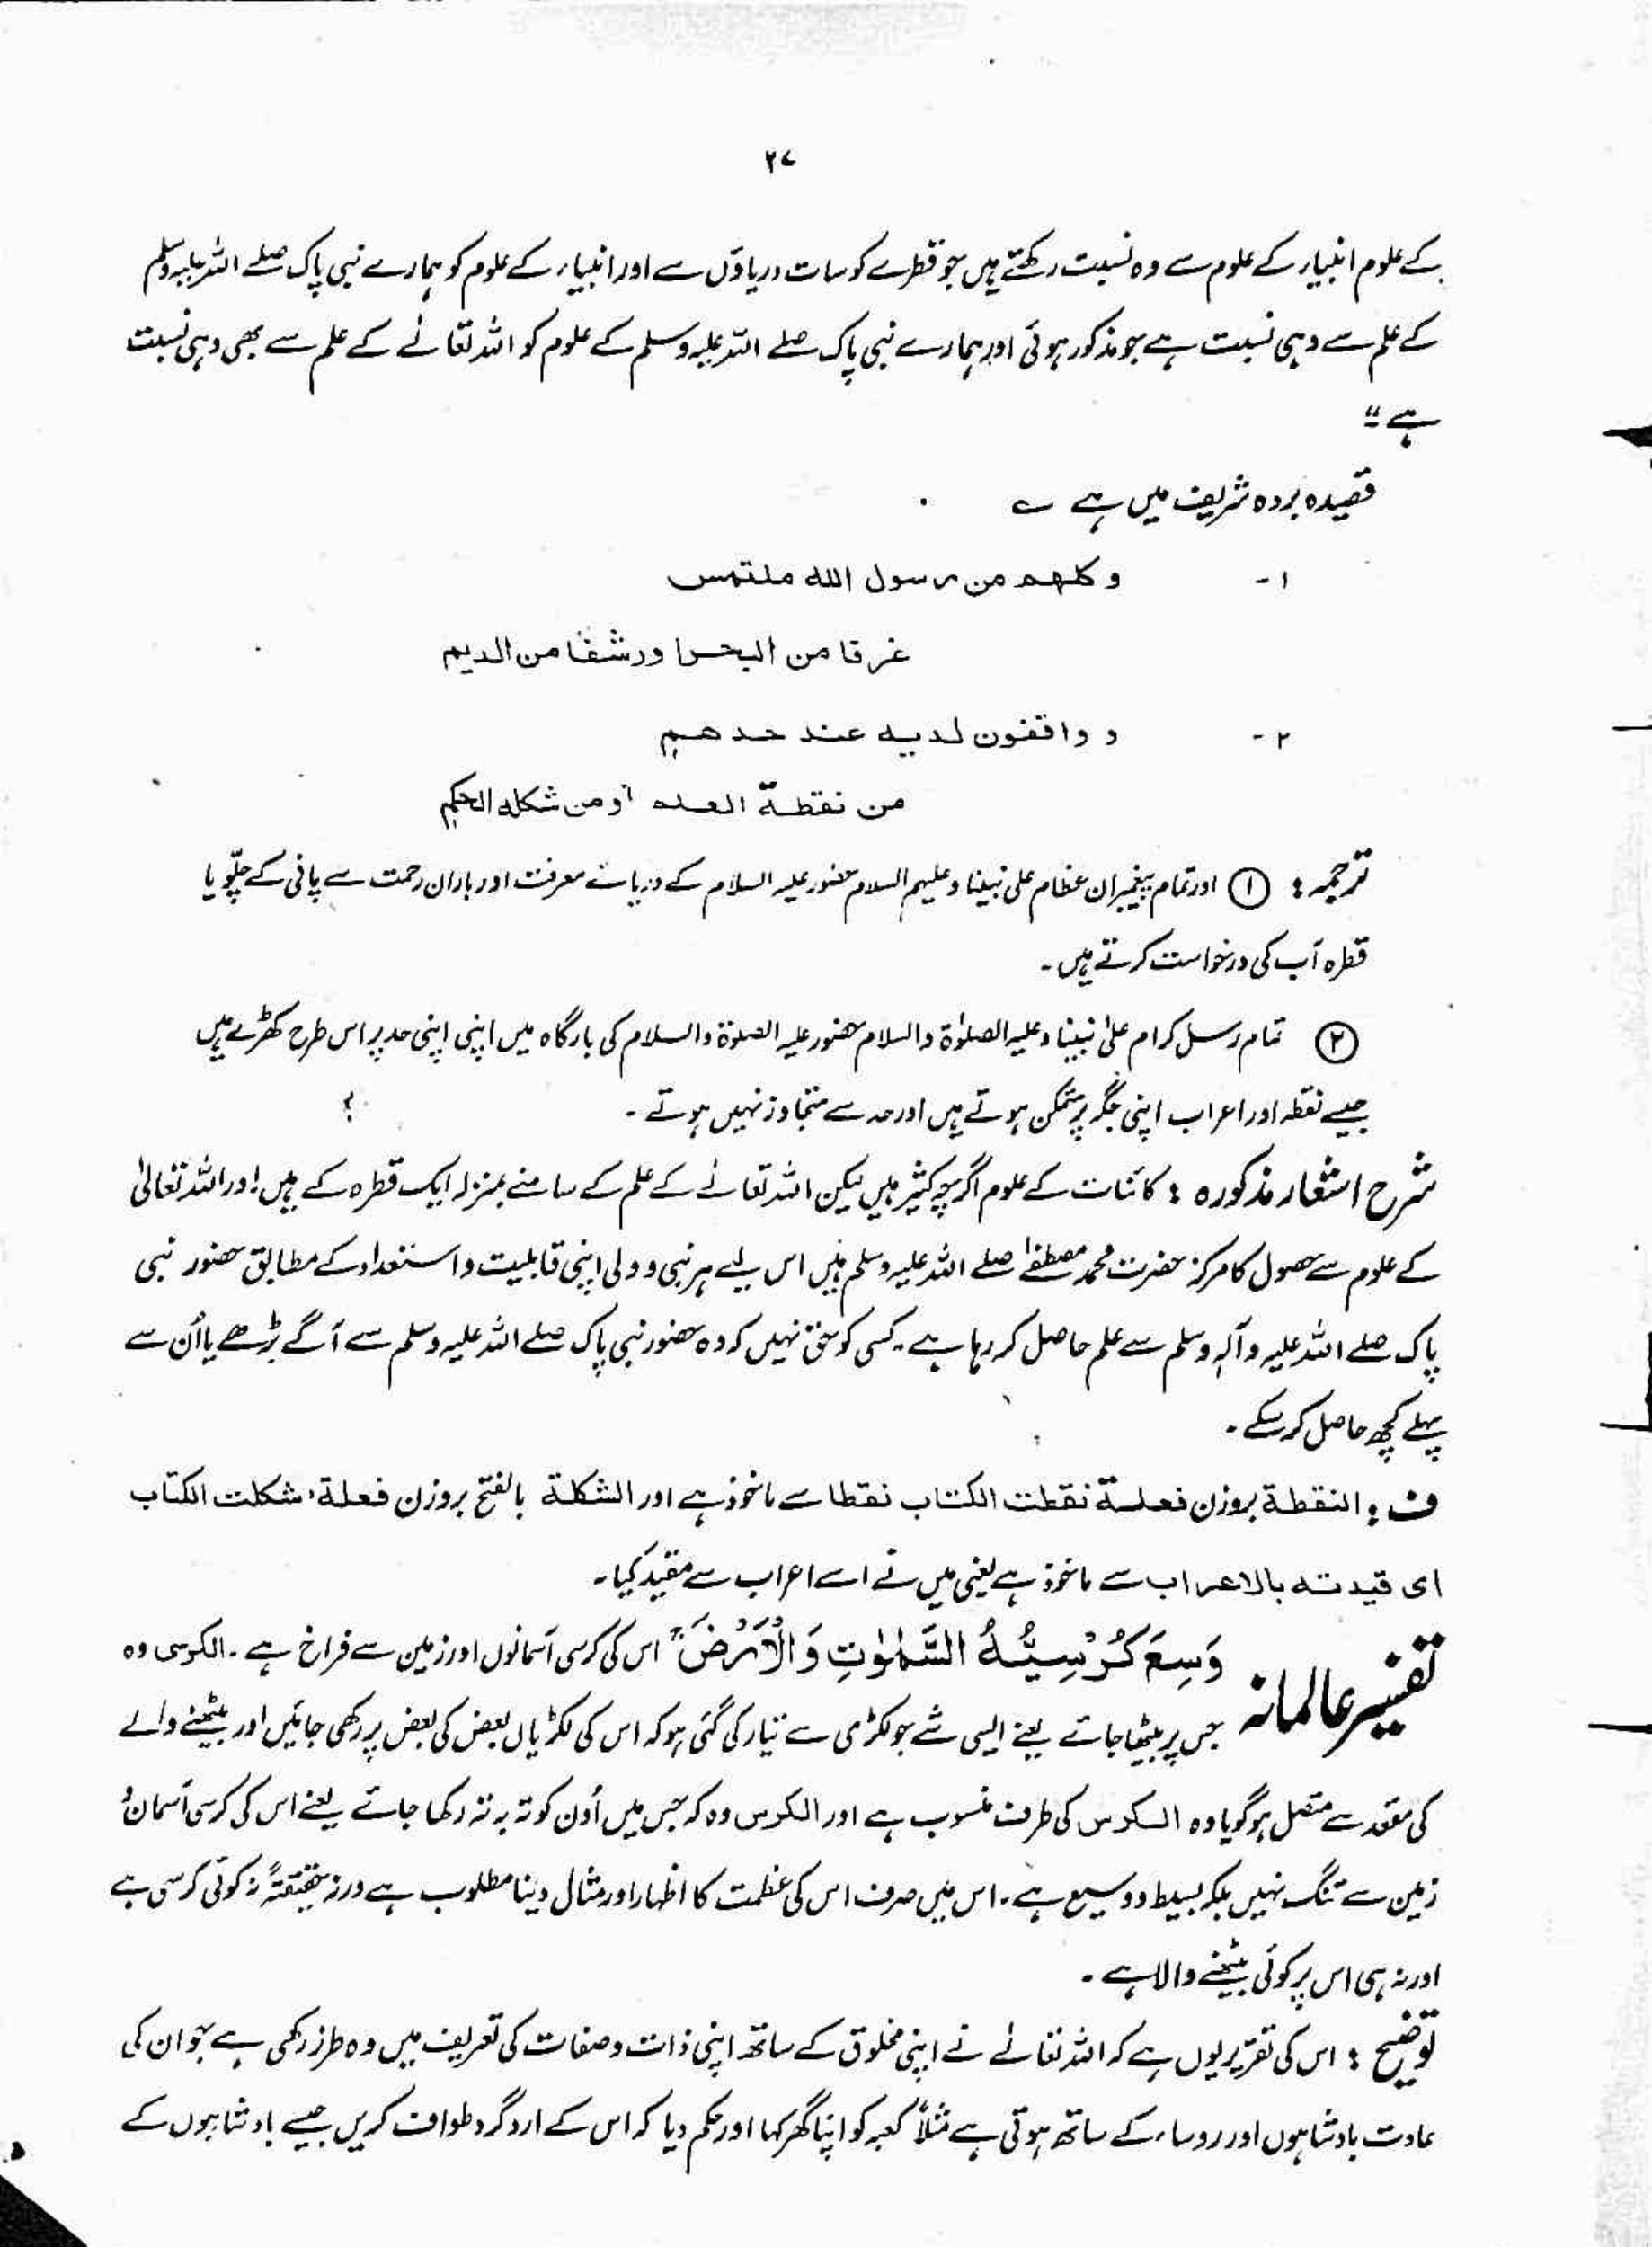 ۲۷
کے علوم انبیاء کے علوم سے وہ نسبت رکھتے ہیں جو قطرے کو سات دریاؤں سے اور انبیاء کے علوم کو ہمارے نبی پاک صلے اللہ علیہ وسلم
کے علم سے وہی نسبت ہے جو مذکور ہوئی اور ہمارے نبی پاک صلے اللہ علیہ وسلم کے علوم کو اللہ تعالےٰ کے علم سے بھی وہی نسبت
ہے"
قصیدہ بردہ شریف میں ہے ؎
۱- وکلھم من رسول اللہ ملتمس
غرقا من البحر اورشفا من الدیم
۲- و واقفون لدیہ عند حدھم
من نقطۃ العلم أو من شکلہ الحکم
ترجمہ : ① اور تمام پیغمبران عظام علی نبینا وعلیہم السلام حضور علیہ السلام کے دریائے معرفت اور باران رحمت سے پانی کے چلّو یا
قطرہ آب کی درخواست کرتے ہیں۔
② تمام رسل کرام علیٰ نبینا وعلیہ الصلوٰۃ والسلام حضور علیہ الصلوٰۃ والسلام کی بارگاہ میں اپنی اپنی حد پر اس طرح کھڑے ہیں
جیسے نقطہ اور اعراب اپنی جگہ پر متمکن ہوتے ہیں اور حد سے متجاوز نہیں ہوتے ۔
شرح اشعار مذکورہ : کائنات کے علوم اگرچہ کثیر ہیں لیکن اللہ تعالےٰ کے علم کے سامنے بمنزلہ ایک قطرہ کے ہیں اور اللہ تعالیٰ
کے علوم سے حصول کا مرکز حضرت محمد مصطفےٰ صلے اللہ علیہ وسلم ہیں اس لیے ہر نبی و ولی اپنی قابلیت و استعداد کے مطابق حضور نبی
پاک صلے اللہ علیہ وآلہٖ وسلم سے علم حاصل کر رہا ہے ۔ کسی کو حق نہیں کہ وہ حضور نبی پاک صلے اللہ علیہ وسلم سے آگے بڑھے یا اُن سے
پہلے کچھ حاصل کر سکے ۔
ف : النقطۃ بروزن فعلۃ نقطت الکتاب نقطا سے ماخوذ ہے اور الشکلۃ بالفتح بروزن فعلۃ، شکلت الکتاب
ای قیدتہ بالاعراب سے ماخوذ ہے یعنی میں نے اسے اعراب سے مقید کیا۔
تفسیر عالمانہ وَسِعَ كُرْسِيُّهُ السَّمٰوٰتِ وَالْاَرْضَ ۚ اس کی کرسی آسمانوں اور زمین سے فراخ ہے ۔ الکرسی وہ
جس پر بیٹھا جائے یعنے ایسی شے جو لکڑی سے تیار کی گئی ہو کہ اس کی لکڑیاں بعض کی بعض پر رکھی جائیں اور بیٹھنے والے
کی مقعد سے متصل ہو گویا وہ الکرس کی طرف منسوب ہے اور الکرس وہ کہ جس میں اُون کو تہ بہ تہ رکھا جائے یعنے اس کی کرسی آسمان و
زمین سے تنگ نہیں بلکہ بسیط و وسیع ہے ۔ اس میں صرف اس کی عظمت کا اظہار اور مثال دینا مطلوب ہے ورنہ حقیقۃً نہ کوئی کرسی ہے
اور نہ ہی اس پر کوئی بیٹھنے والا ہے ۔
توضیح : اس کی تقریر یوں ہے کہ اللہ تعالےٰ نے اپنی مخلوق کے ساتھ اپنی ذات و صفات کی تعریف میں وہ طرز رکھی ہے جو ان کی
عادت بادشاہوں اور روساء کے ساتھ ہوتی ہے مثلاً کعبہ کو اپنا گھر کہا اور حکم دیا کہ اس کے ارد گرد طواف کریں جیسے بادشاہوں کے